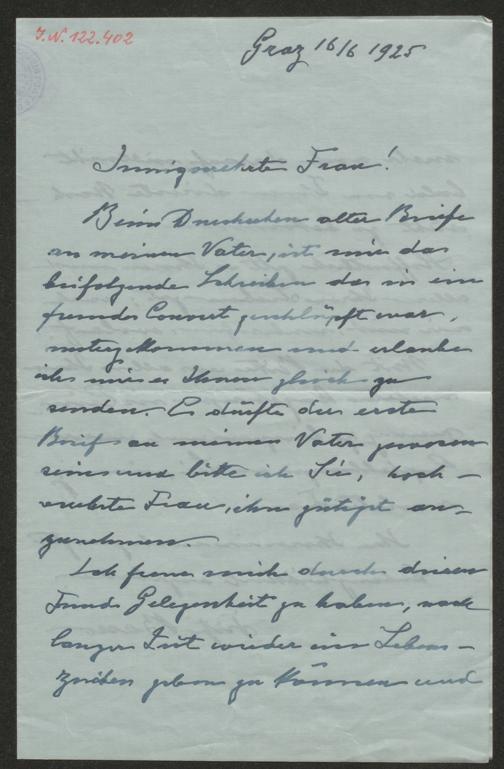 J.N. 122.402
Graz 16/6 1925
Innigverehrte Frau!
Beim Durchsehen alter Briefe
an meinen Vater, ist mir das
beifolgende Schreiben das in ein
fremdes Couvert geschlüpft war,
untergekommen und erlaube
ich mir es Ihnen gleich zu
senden. Es dürfte der erste
Brief an meinen Vater gewesen
sein und bitte ich Sie, hoch-
verehrte Frau, ihn gütigst an-
zunehmen.
Ich freue mich durch diesen
Fund Gelegenheit zu haben, nach
langer Zeit wieder ein Lebens-
zeichen geben zu können und